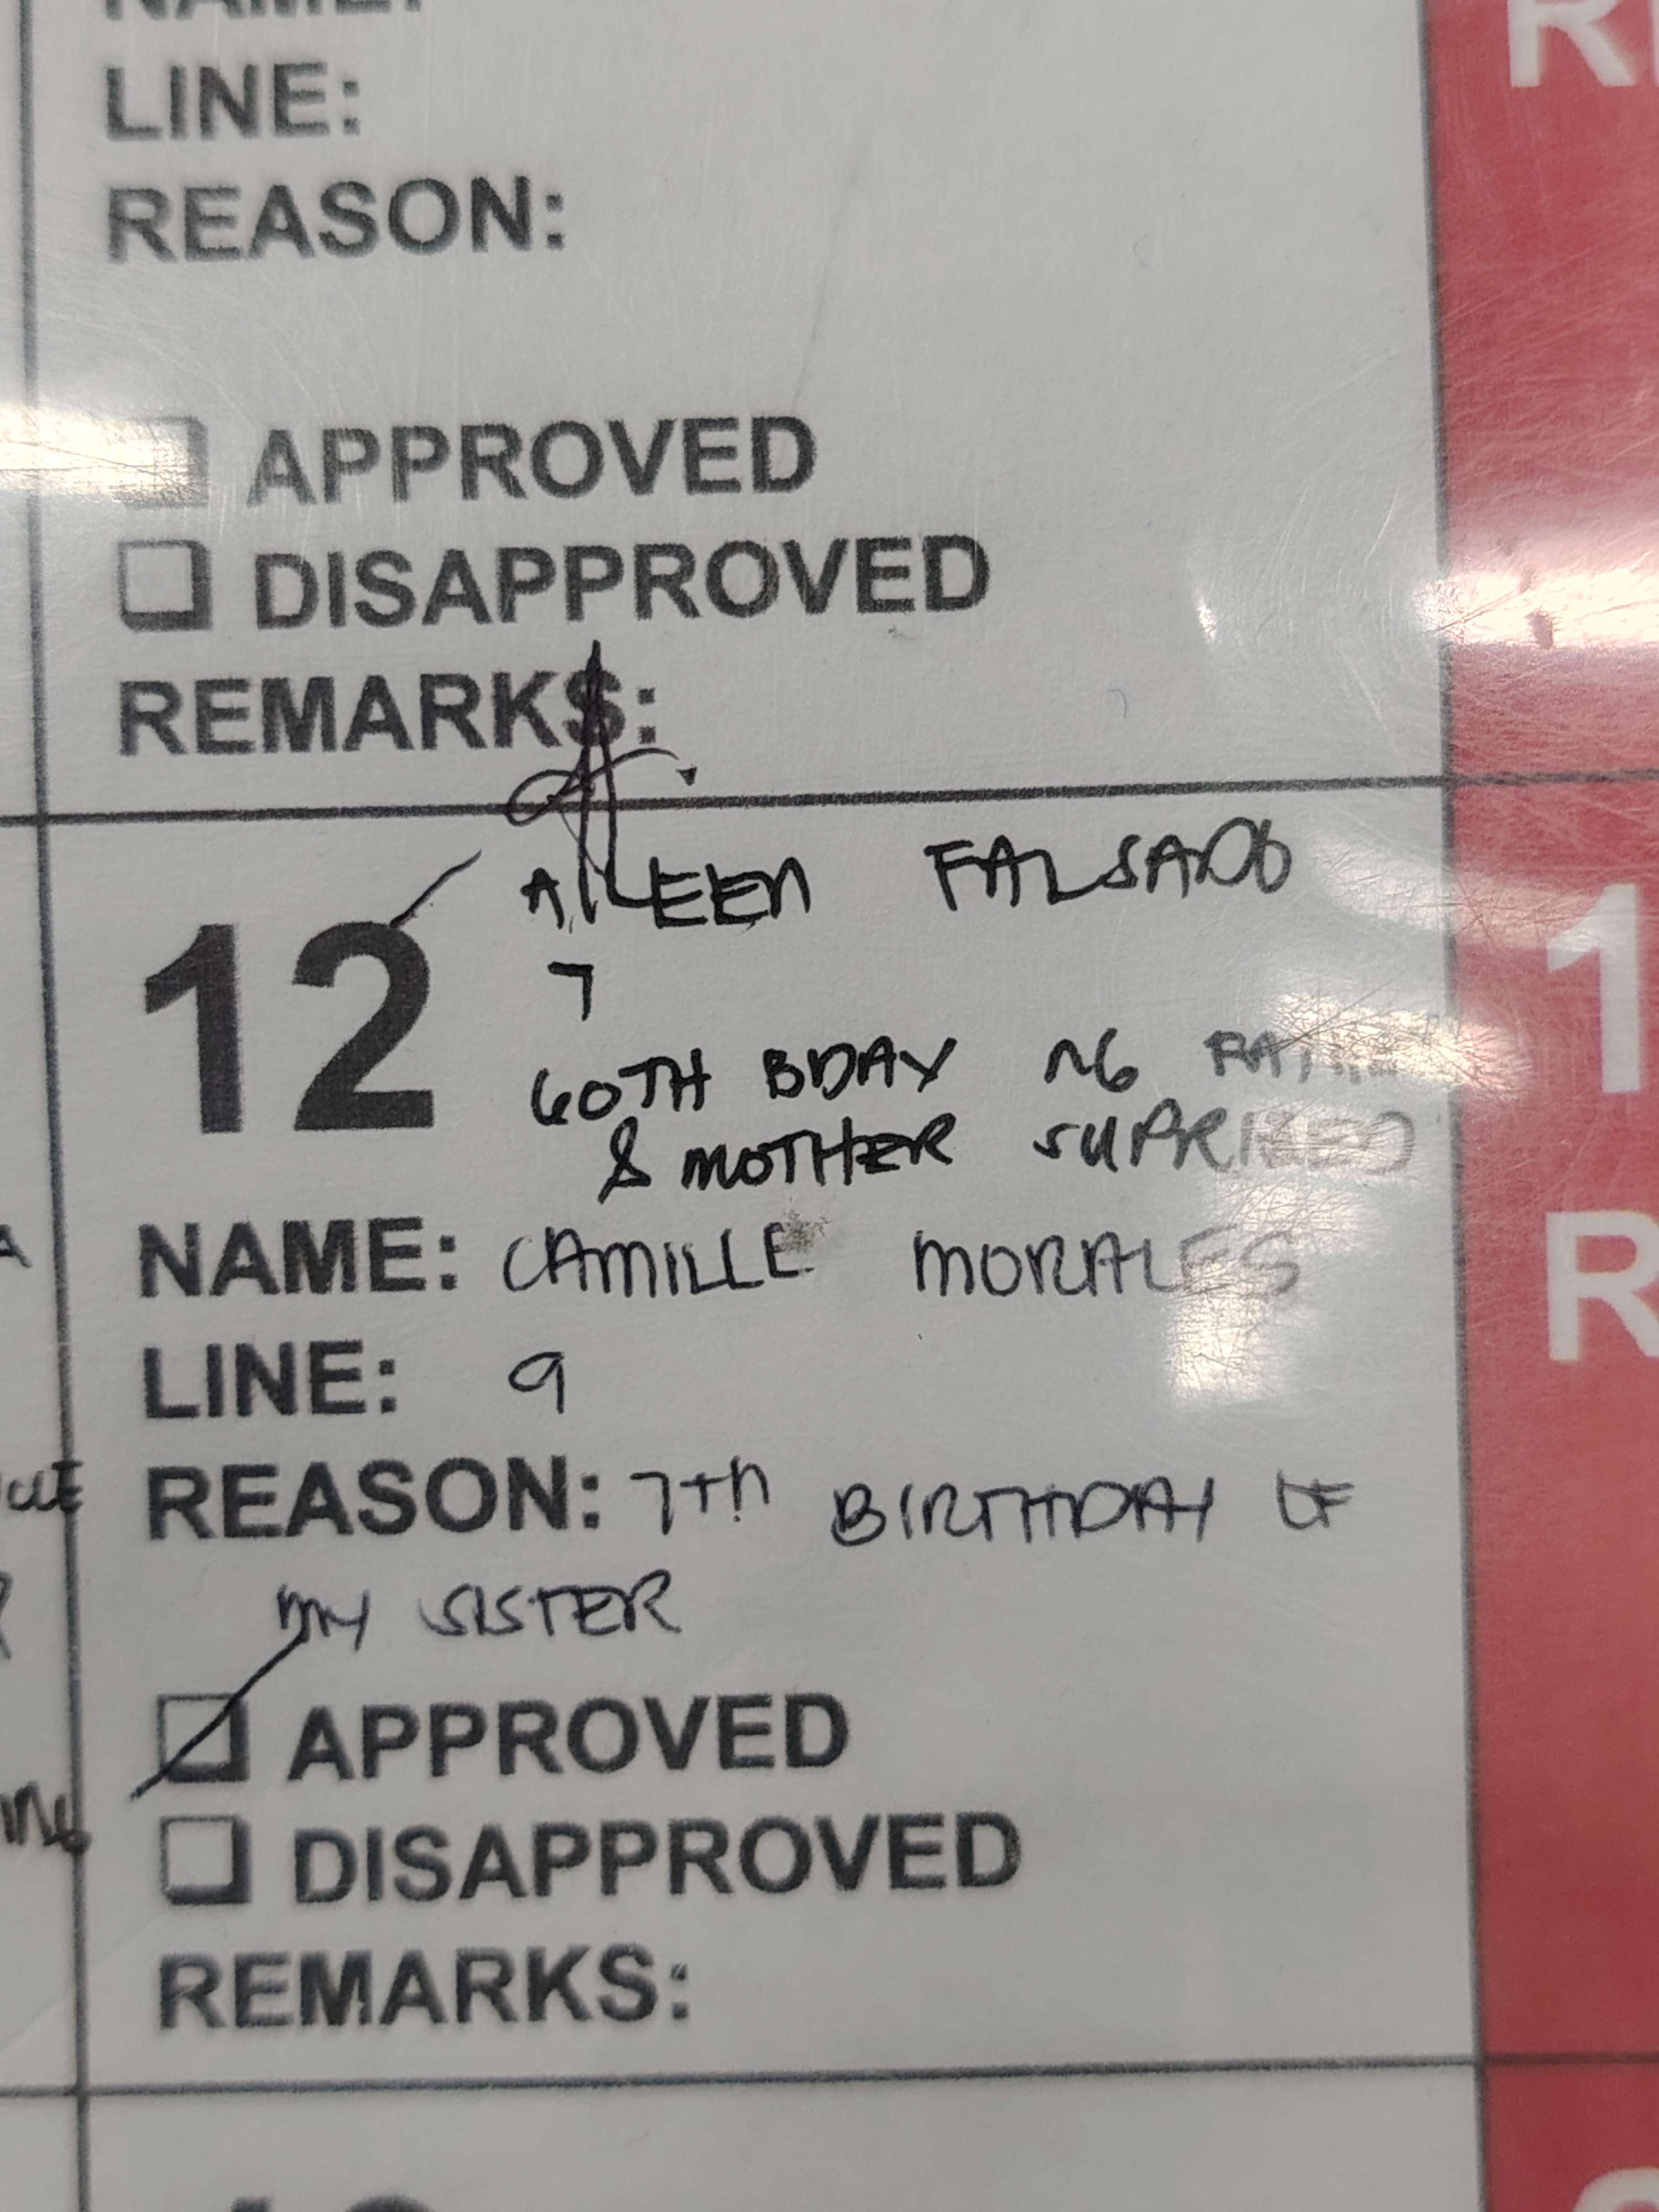 NAME:
LINE:
REASON:
APPROVED
DISAPPROVED
REMARKS:
12
AILEEN FALSADO
7
60TH BDAY NG
& MOTHER SUPRIZED
NAME: CAMILLE MORALES
LINE: 9
REASON: 7th BIRTHDAY OF
MY SISTER
APPROVED
DISAPPROVED
REMARKS: